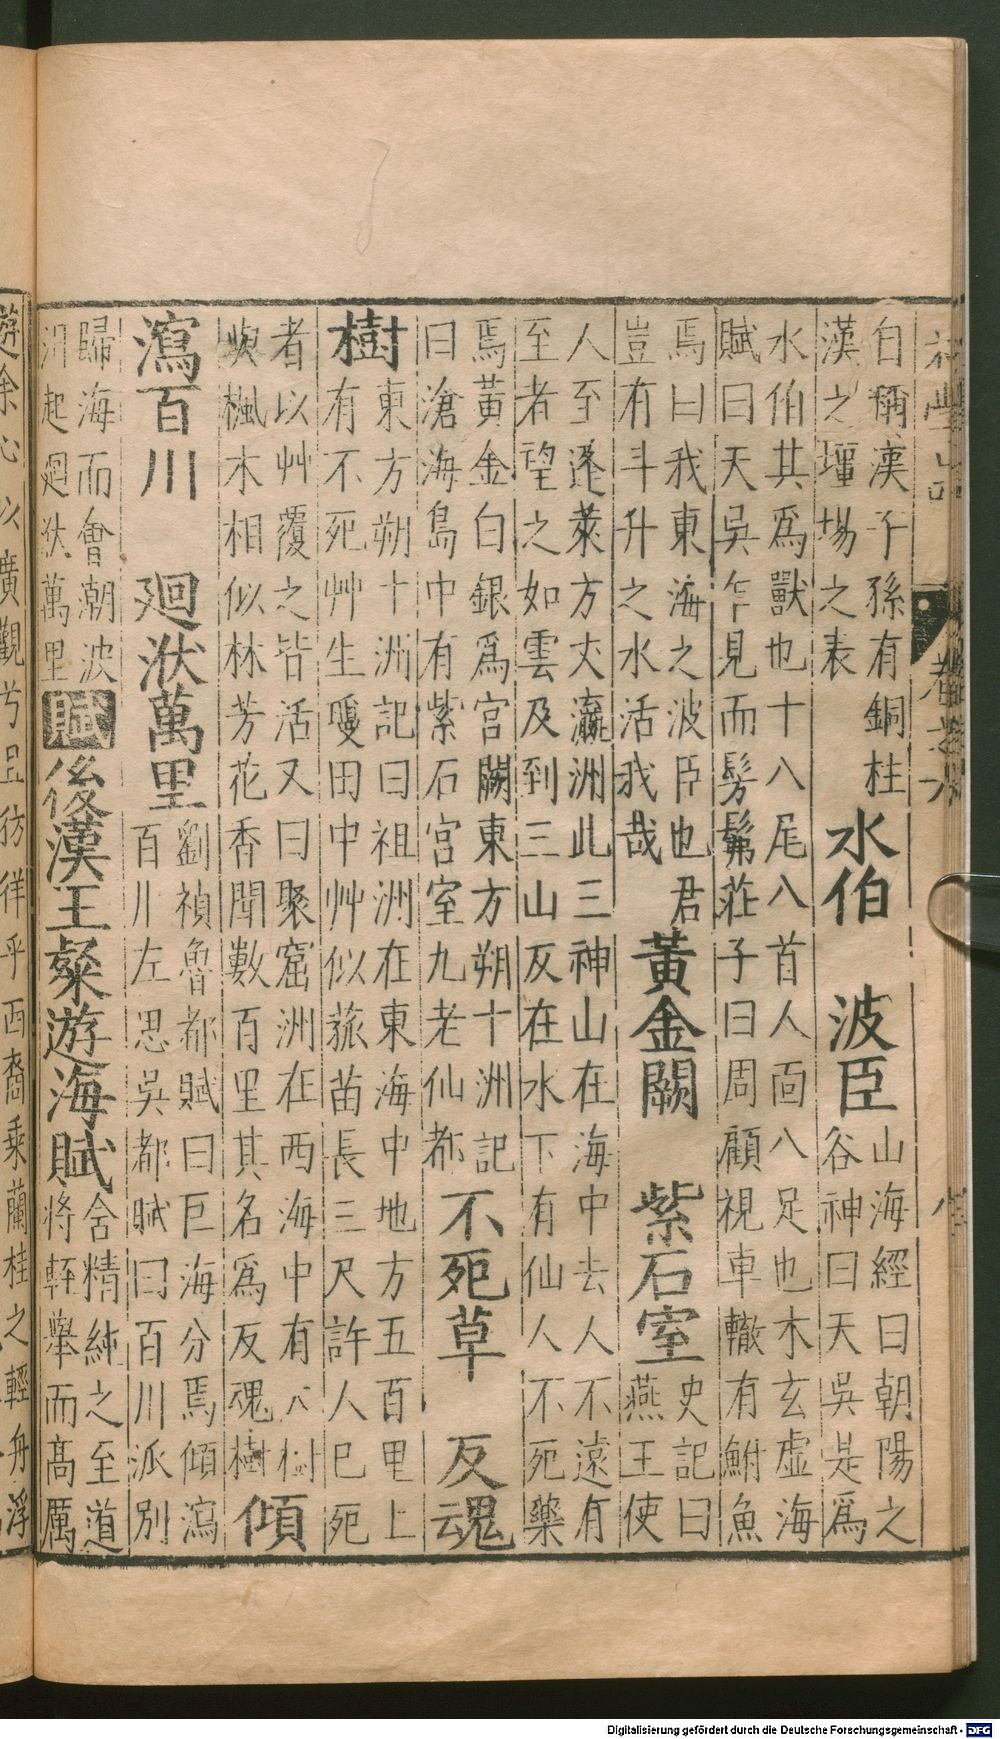 自稱漢子孫有銅柱
漢之壃場之表
水伯　波臣
山海經曰朝陽之
谷神曰天吳是爲
水伯其爲獸也十八尾八首人面八足也木玄虛海
賦曰天吳乍見而髣髴莊子曰周顧視車轍有鮒魚
焉曰我東海之波臣也君
豈有斗升之水活我哉
黃金闕　紫石室
史記曰
燕王使
人至蓬萊方丈瀛洲此三神山在海中去人不遠有
至者望之如雲及到三山反在水下有仙人不死藥
焉黃金白銀爲宮闕東方朔十洲記
曰滄海島中有紫石宮室九老仙都
不死草　反魂
樹
東方朔十洲記曰祖洲在東海中地方五百里上
有不死艸生瓊田中艸似菰苗長三尺許人巳死
者以艸覆之皆活又曰聚窟洲在西海中有樹
與楓木相似林芳花香聞數百里其名爲反魂樹
傾
瀉百川　廻洑萬里
劉禎魯都賦曰巨海分焉傾瀉
百川左思吳都賦曰百川派別
歸海而會潮波
起廻洑萬里
賦
後漢王粲遊海賦
含精純之至道
將輕舉而高厲
遊余心以廣觀兮且彷徉乎西裔乘蘭桂之輕舟浮
Digitalisierung gefördert durch die Deutsche Forschungsgemeinschaft - DFG